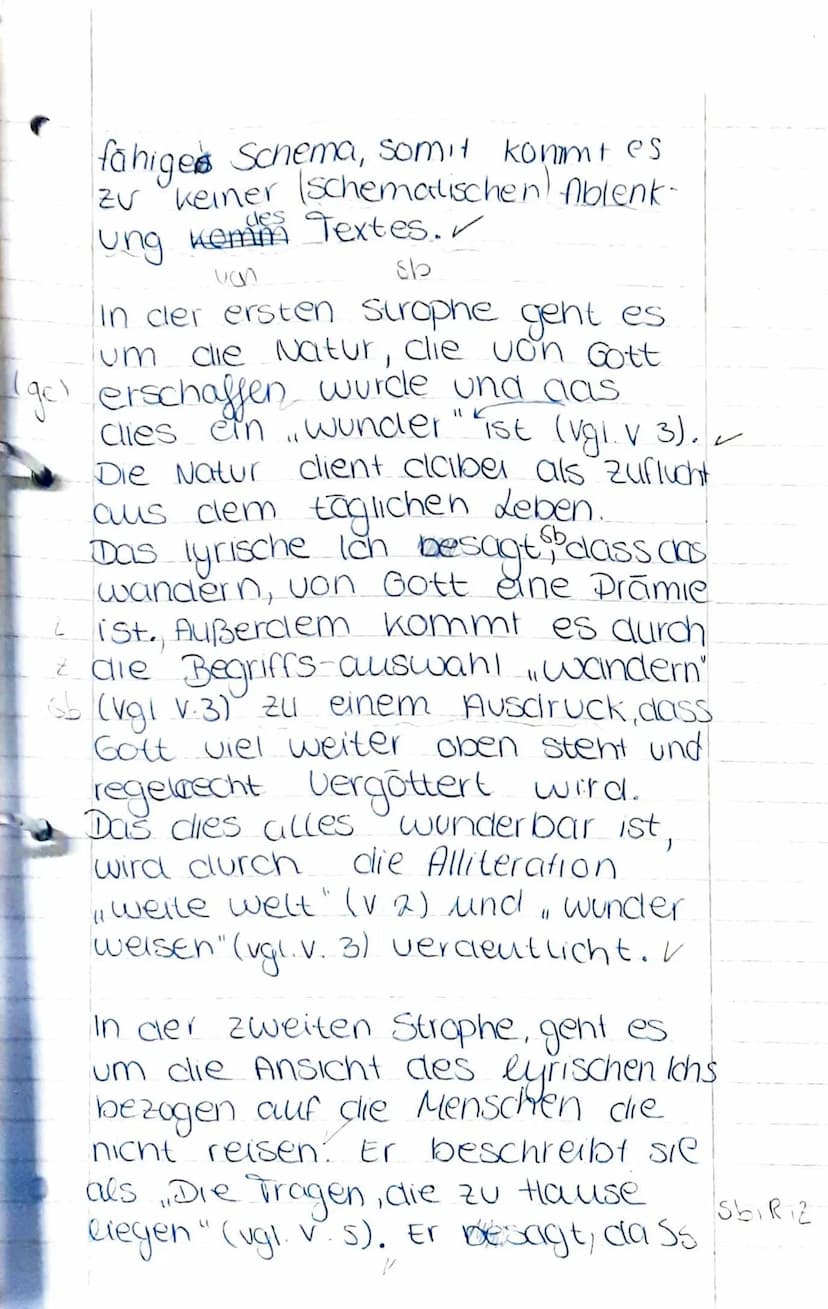 fähiges Schema, somit kommt es
zu keiner (schematischen) Ablenk-
ung des Textes. ✓
von Sb
In der ersten Strophe geht es
um die Natur, die von Gott
(ge) erschaffen wurde und das
dies ein „wunder" ist (vgl. v 3). ✓
Die Natur dient dabei als Zuflucht
aus dem täglichen Leben.
Das lyrische Ich besagt, Sb dass das
wandern, von Gott eine Prämie
ist., Außerdem kommt es durch
Z die Begriffs-auswahl „wandern"
Sb (vgl v.3) zu einem Ausdruck, dass
Gott viel weiter oben steht und
regelrecht vergöttert wird.
Das dies alles wunderbar ist,
wird durch die Alliteration
„weite welt" (v 2) und „wunder
weisen" (vgl. v. 3) verdeutlicht. ✓
In der zweiten Strophe, geht es
um die Ansicht des lyrischen Ichs
bezogen auf die Menschen die
nicht reisen. Er beschreibt sie
als „Die Tragen, die zu Hause
liegen" (vgl. v. 5). Er besagt, dass
Sb, R, Z